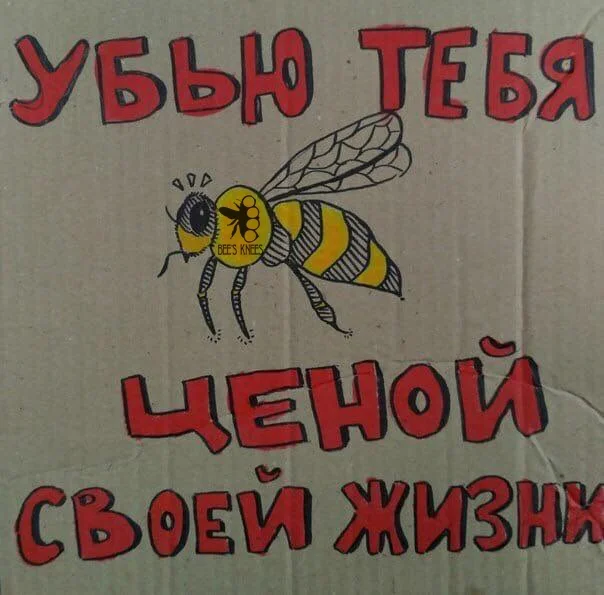 УБЬЮ ТЕБЯ
BEES KNEES
ЦЕНОЙ
СВОЕЙ ЖИЗНИ